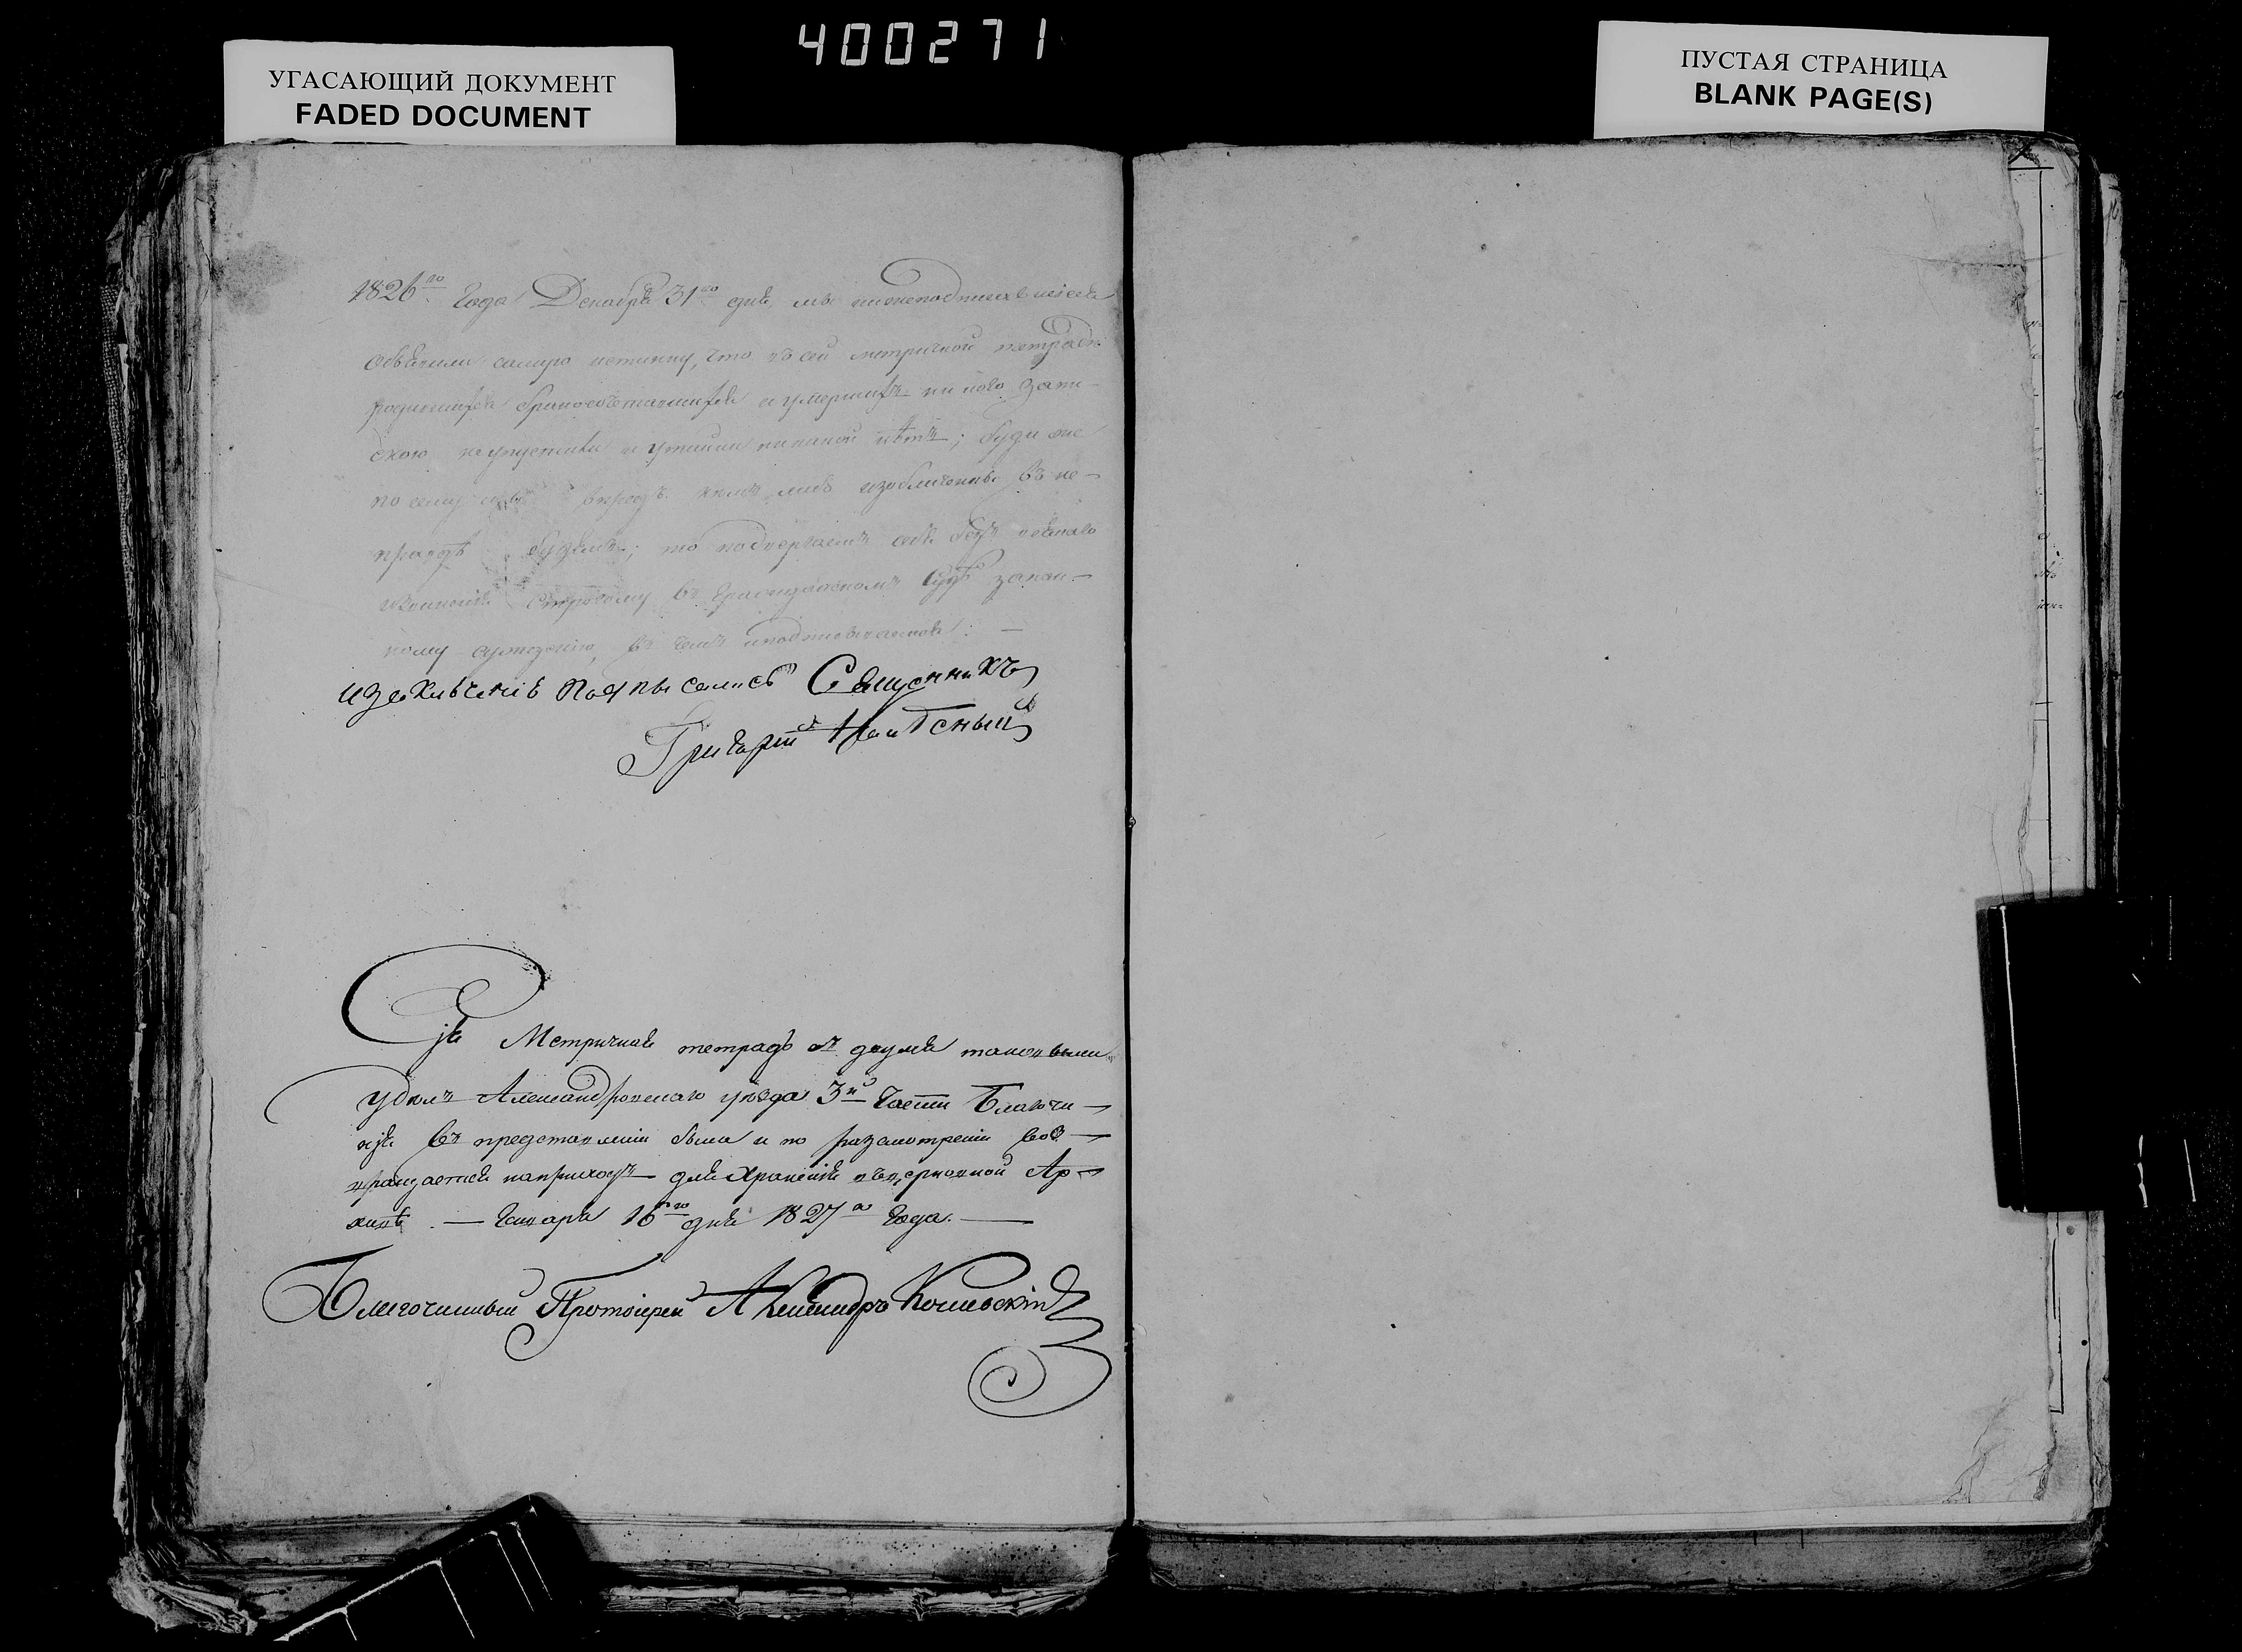 400271
УГАСАЮЩИЙ ДОКУМЕНТ
FADED DOCUMENT
ПУСТАЯ СТРАНИЦА
BLANK PAGE(S)
1826го Года Декабря 31го дня, мы нижеподписавшіеся
объявили самую истинну, что въ сей метричной тетради
родившихся бракосочетавшихся и умершихъ ни кого запи-
скою не упустили и утайки никакой нѣтъ; буди же
по сему впредь кемъ либо изобличенны въ не-
правдѣ будемъ; то подвергаемъ себя безъ всякаго
строгому въ гражданскомъ судѣ закон-
ному суждению, въ чемъ и подписываемся: —
Подписались Священникъ
Григорій
Сія Метричная тетрадь съ двумя таковыми
Александровскаго уѣзда 3й Части Благочи-
нія въ представленіи была и по разсмотреніи воз-
вращается на приходъ для храненія въ церковной Ар-
хивѣ. — Генваря 16го дня 1827го Года. —
Благочинный Протоіерей Александръ